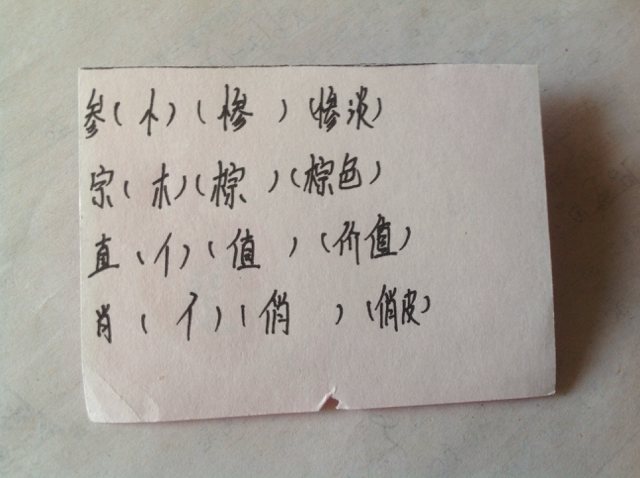 参（忄）（惨）（惨淡）
宗（木）（棕）（棕色）
直（亻）（值）（价值）
肖（亻）（俏）（俏皮）